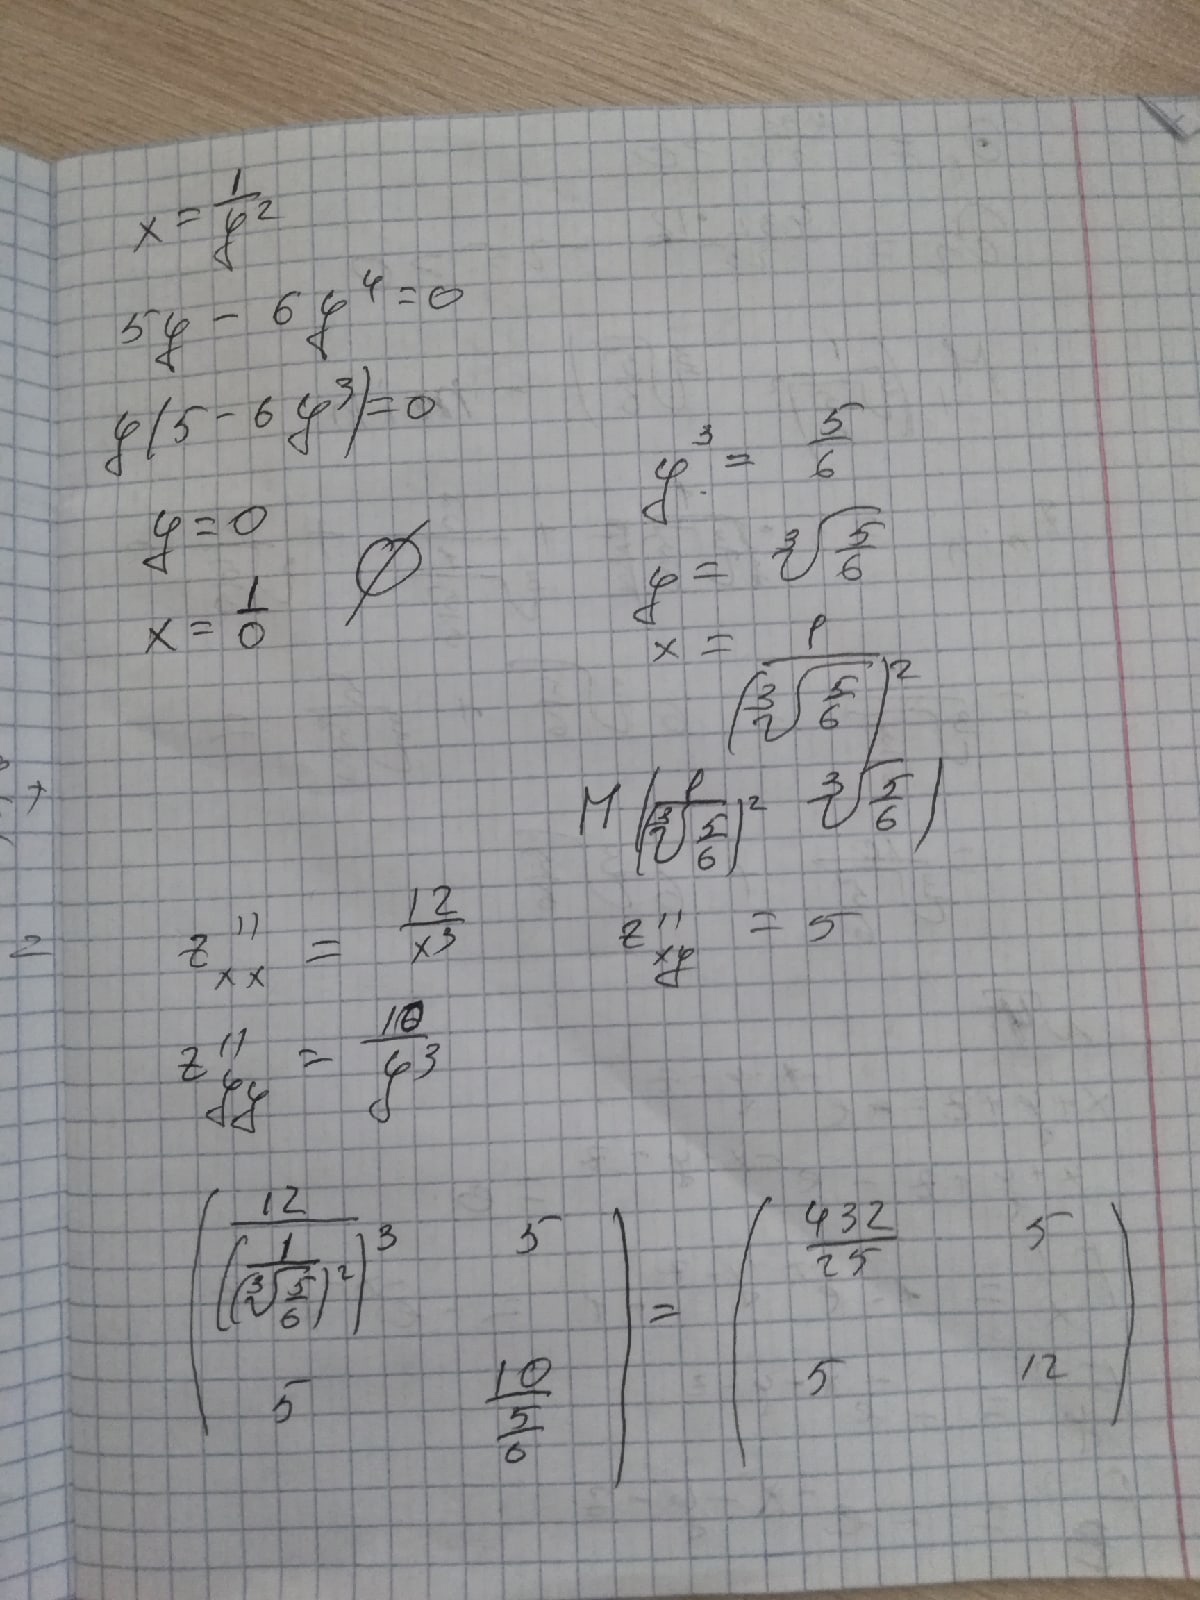 x = 1/y²
5y - 6y⁴ = 0
y(5 - 6y³) = 0
y³ = 5/6
y = 0
y = ∛(5/6)
x = 1/0 ∅
x = 1/(∛(5/6))²
M(1/(∛(5/6))² ∛(5/6))
z''xx = 12/x³ z''xy = 5
z''yy = 10/y³
(12/(1/(∛(5/6))²)³ 5 5 10/(5/6)) = (432/25 5 5 12)